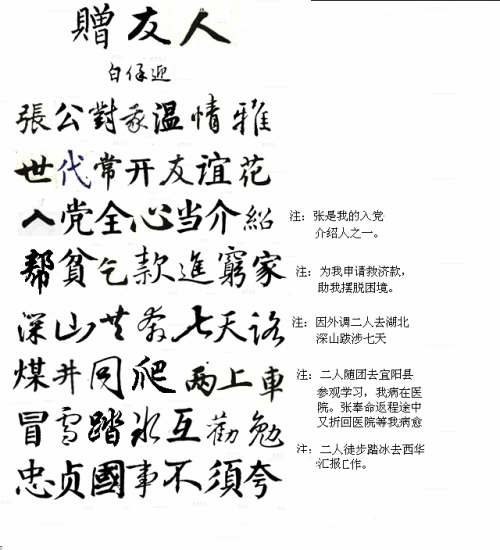 贈友人
白仔迎
張公對我温情雅
世代常开友谊花
入党全心当介紹
注：张是我的入党
介绍人之一。
帮貧乞款進窮家
注：为我申请救济款，
助我摆脱困境。
深山共奔七天路
注：因外调二人去湖北
深山跋涉七天
煤井同爬两上車
注：二人随团去宜阳县
参观学习，我病在医
院。张奉命返程途中
又折回医院等我病愈
冒雪踏氷互勸勉
注：二人徒步踏冰去西华
汇报工作。
忠贞國事不須夸